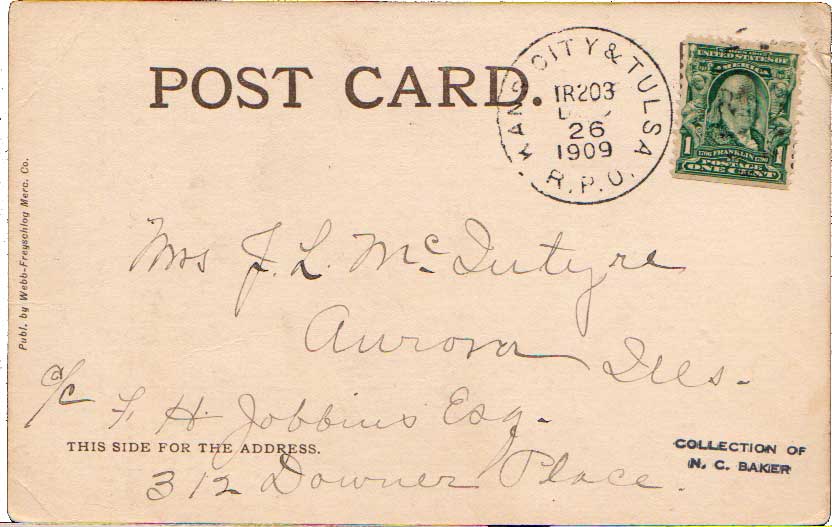 POST CARD.
KANS. CITY & TULSA
TR203
26
1909
R.P.O.
UNITED STATES OF
AMERICA
1 1
FRANKLIN
POSTAGE
ONE CENT
Publ. by Webb-Freyschlag Merc. Co.
Mrs J. L. McIntyre
Aurora Ills.
a/c F. H. Jobbins Esq.
THIS SIDE FOR THE ADDRESS.
312 Downer Place.
COLLECTION OF
N. C. BAKER